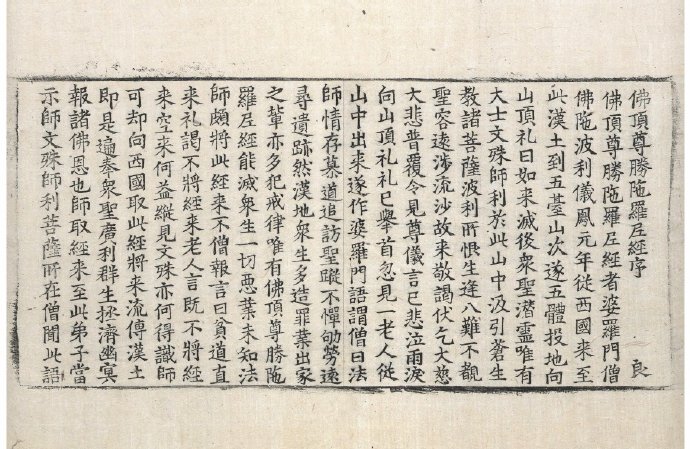 佛頂尊勝陁羅尼經序
良
佛頂尊勝陁羅尼經者婆羅門僧
佛陁波利儀鳳元年從西國來至
此漢土到五臺山次遂五體投地向
山頂礼曰如來滅後衆聖潛靈唯有
大士文殊師利於此山中汲引蒼生
教諸菩薩波利所恨生逢八難不覩
聖容遠涉流沙故來敬謁伏乞大慈
大悲普覆令見尊儀言已悲泣雨淚
向山頂礼礼已舉首忽見一老人從
山中出來遂作婆羅門語謂僧曰法
師情存慕道追訪聖蹤不憚劬勞遠
尋遺跡然漢地衆生多造罪業出家
之輩亦多犯戒律唯有佛頂尊勝陁
羅尼經能滅衆生一切惡業未知法
師頗將此經來不僧報言曰貧道直
來礼謁不將經來老人言既不將經
來空來何益縱見文殊亦何得識師
可却向西國取此經將來流傳漢土
即是遍奉衆聖廣利群生拯濟幽冥
報諸佛恩也師取經來至此弟子當
示師文殊師利菩薩所在僧聞此語